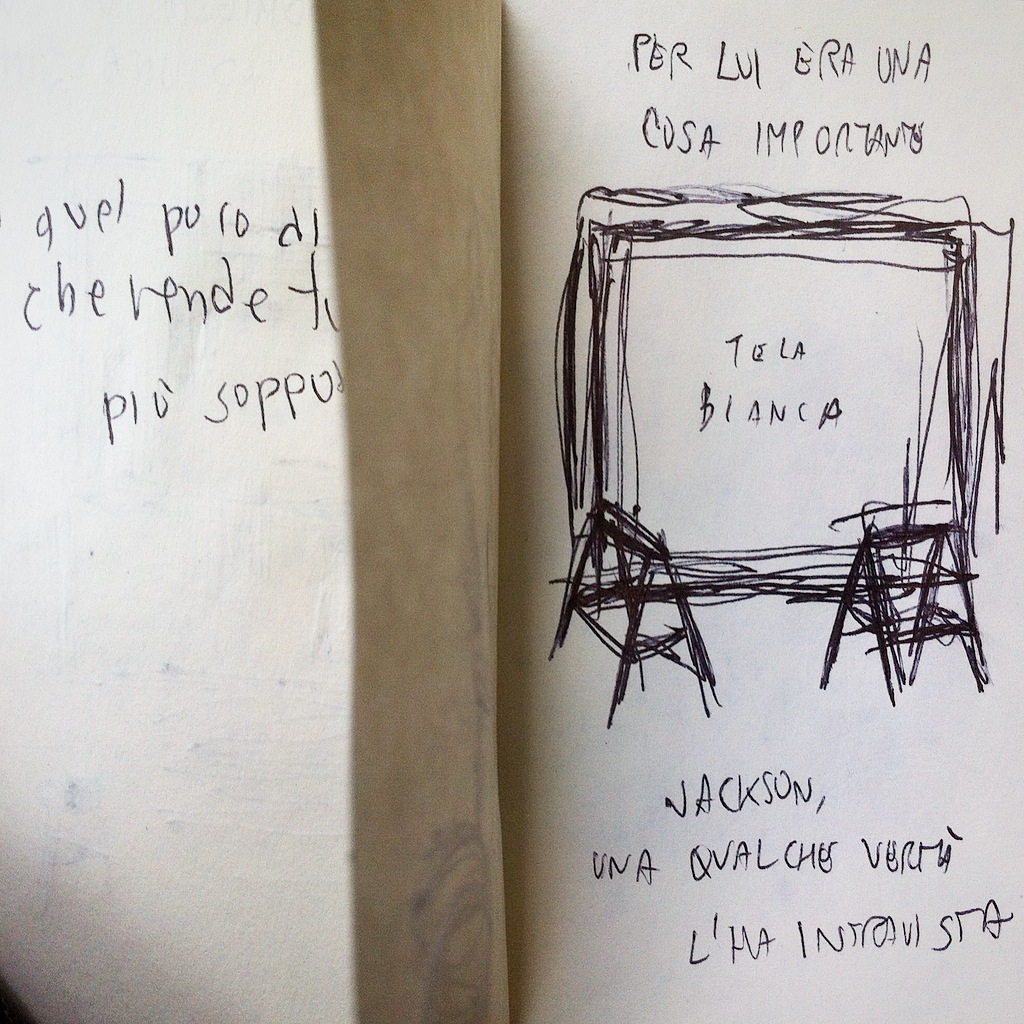 quel poco di
che rende
più
PER LUI ERA UNA
COSA IMPORTANTE
TELA
BIANCA
JACKSON,
UNA QUALCHE VERITÀ
L'HA INTRAVISTA